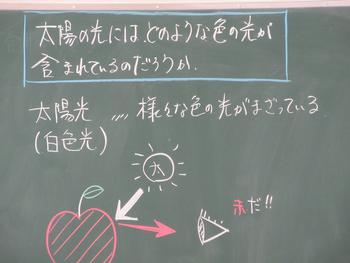 太陽の光には、どのような色の光が
含まれているのだろうか。
太陽光 〃〃 様々な色の光がまざっている
(白色光)
太
赤だ!!